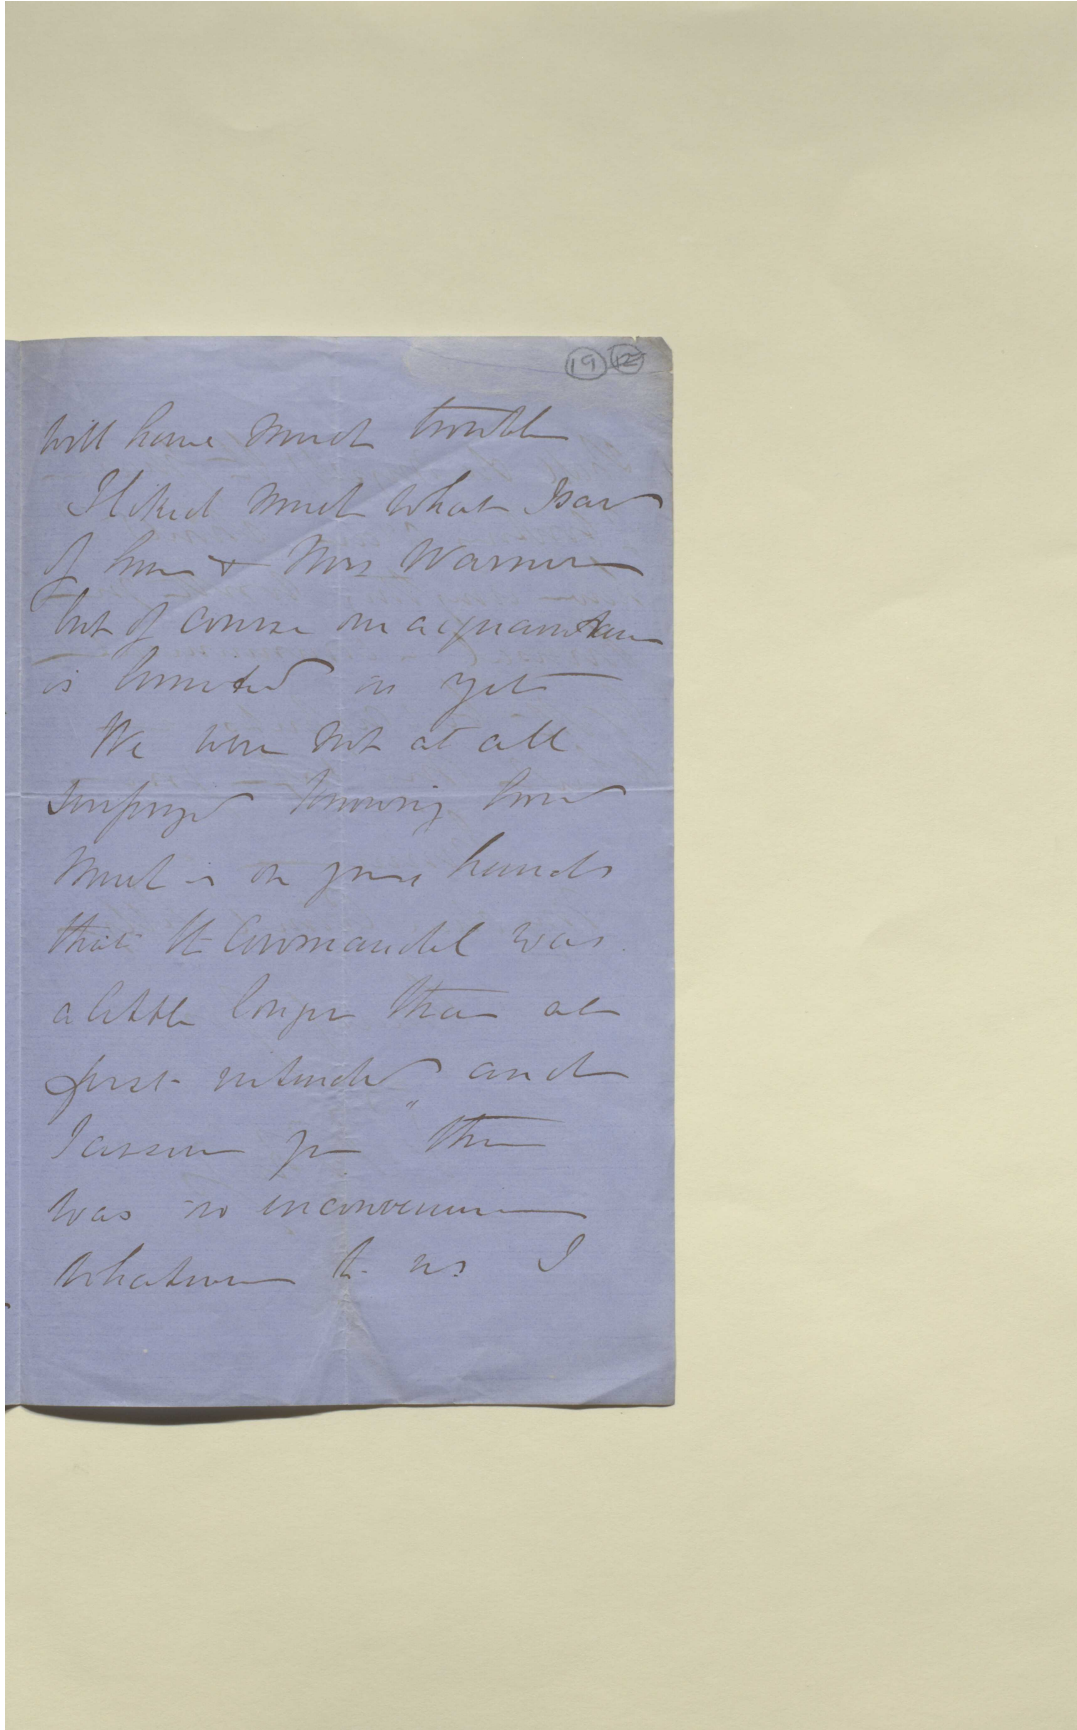 19 12
will have much trouble
I liked much what I saw
of him & Mrs Warner
but of course our acquaintance
is limited as yet
We were not at all
surprized knowing how
much is on your hands
that the Coromandel was
a little longer than at
first intended and
I assure you there
was no inconvenience
whatever to us I